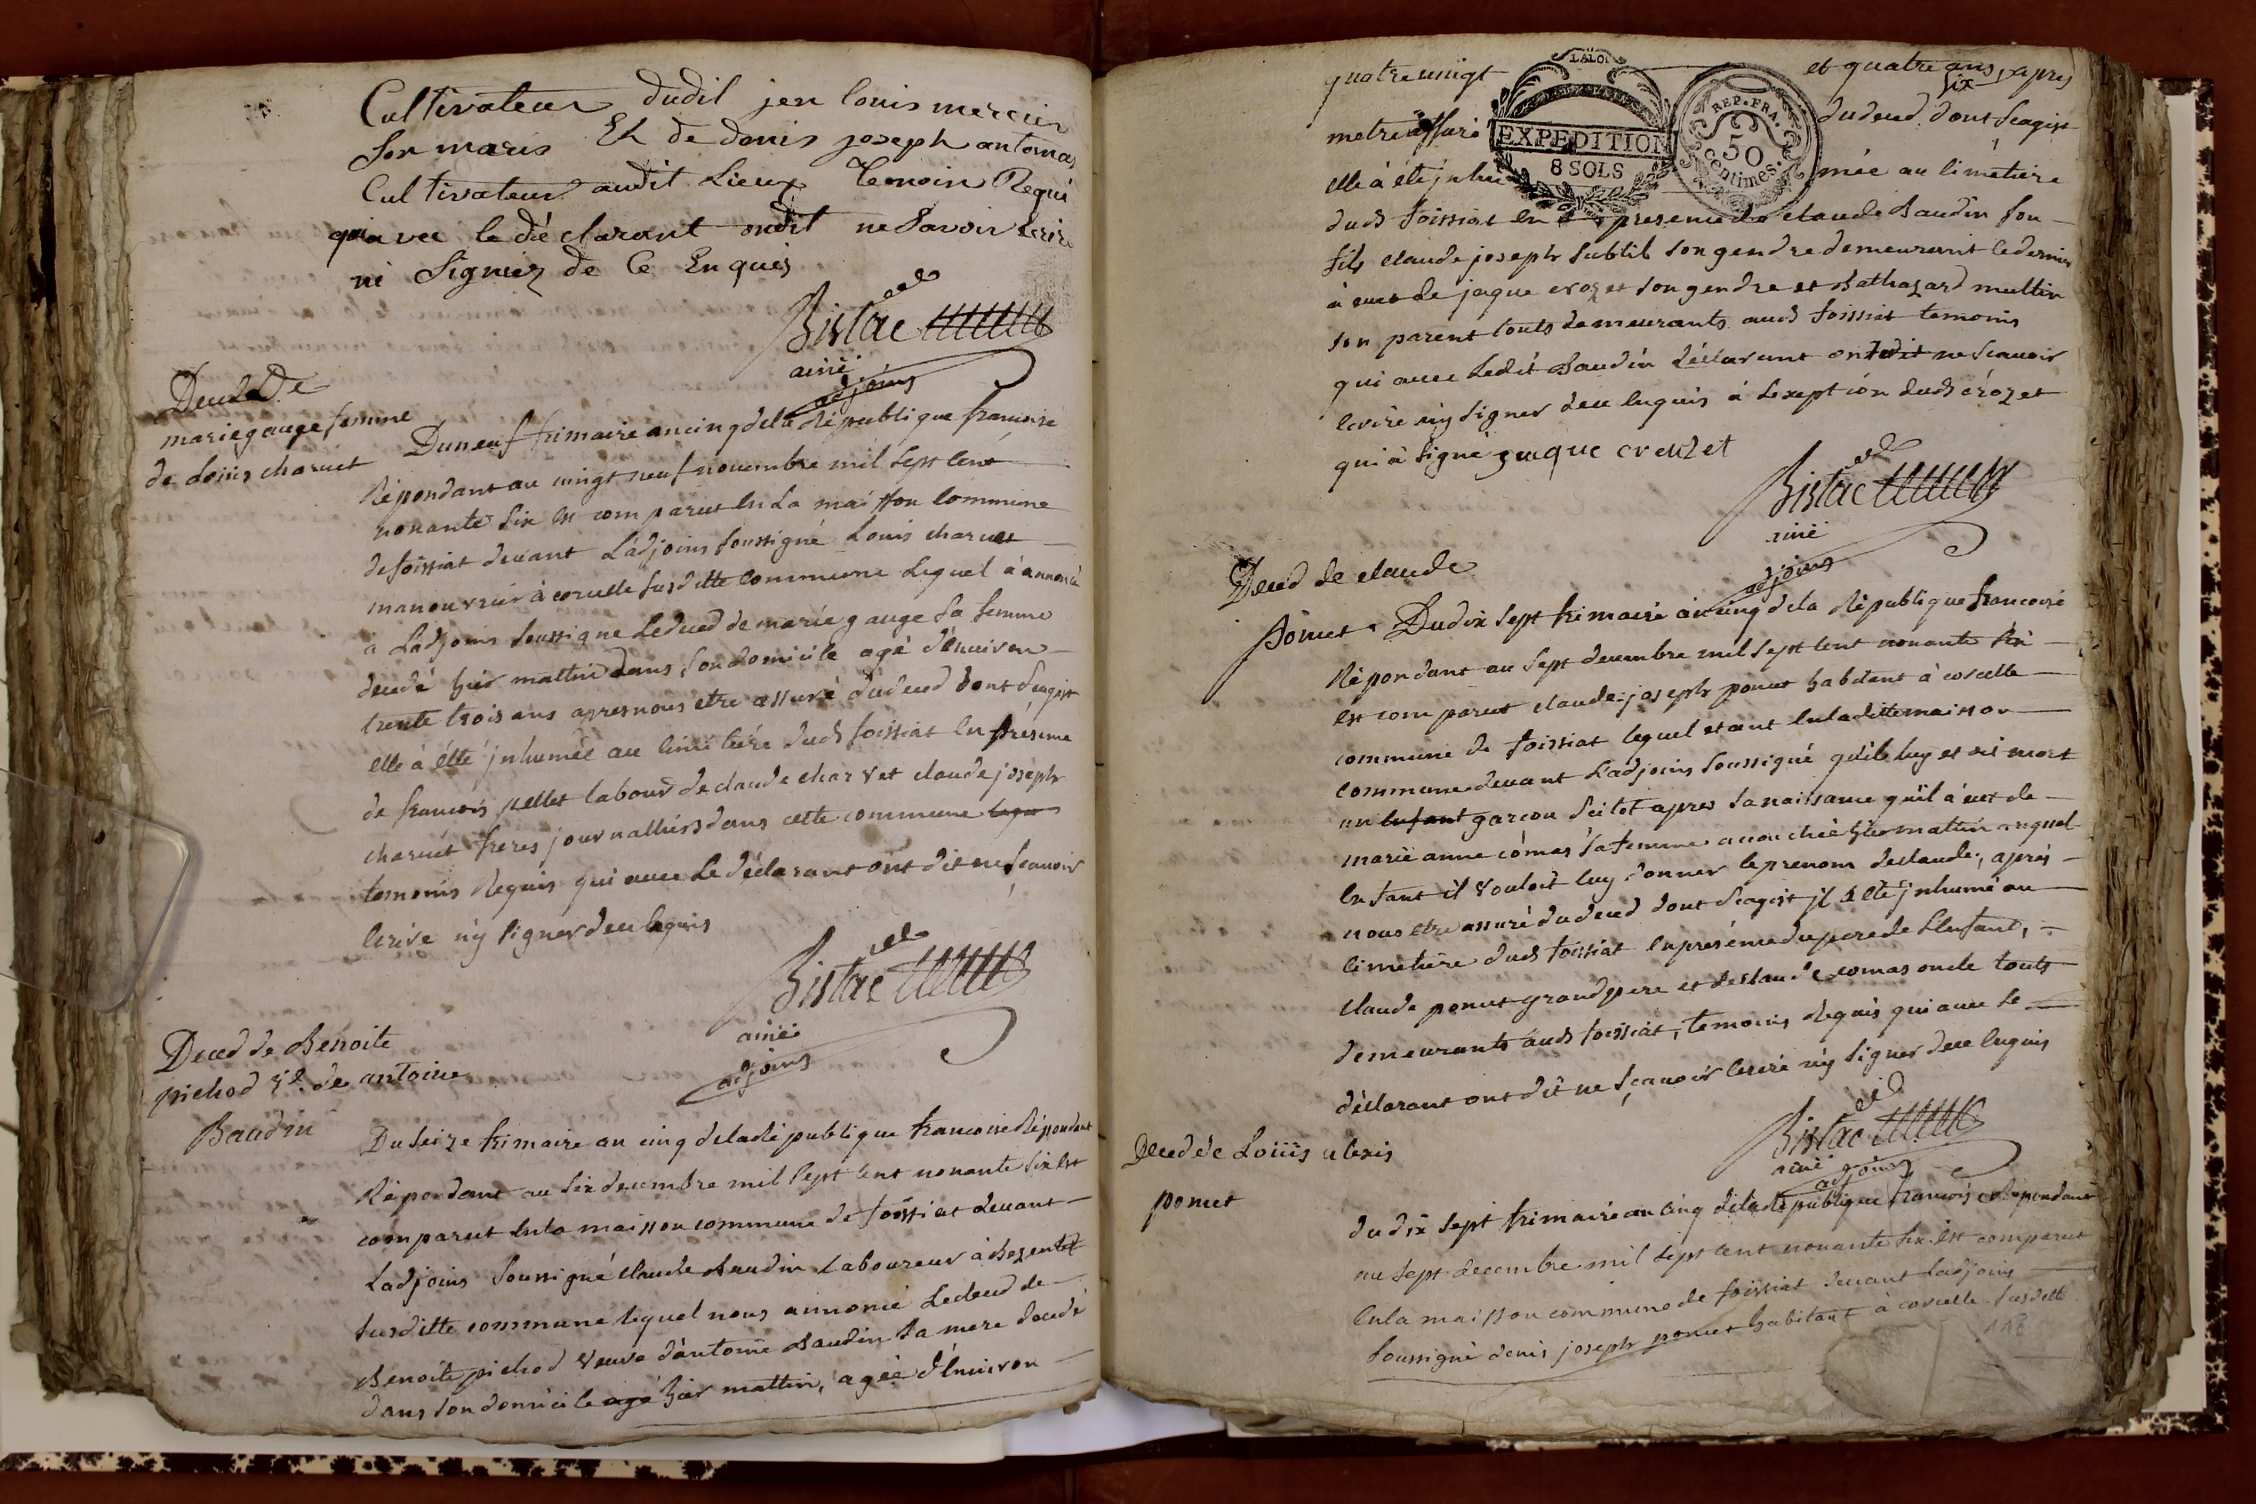 Cultivateur dudit jen louis mercier
son maris Et de denis joseph antomas
Cultivateur audit Lieux temoin Requi
qui avec le déclarant ondit ne savoir Ecrire
ni Signiez de Ce Enquis
Bistac
ainé
adjoins
Deced De
marie gauge femme
de Louis charvet
Du neuf frimaire an cinq dela République francoise
Répondant au vingt neuf novembre mil sept cent
nonante six est comparut En La maisson Commune
de foissiat devant Ladjoins soussigné Louis charvet
manouvrier à corcelle susditte Commune Lequel à annoncé
à Ladjoins soussigne Le deced de marie gauge Sa femme
decedé hier mattin dans son domicile agé denviron
trente trois ans apres nous etre assuré du deced dont sagist
elle à été jnhumée au cimetiére dud foissiat En présence
de francois pellet labour de claude charvet claude joseph
charvet freres journalliers dans cette commune
temoins Requis qui avec Le déclarant ont dit ne scavoir
Ecrire ny signer dece Enquis
Bistac
ainé
adjoins
Deced de Benoite
pichod v.e de antoine
Baudin
Du seize frimaire an cinq dela République francoise Répondant
Répondant au six decembre mil sept cent nonante six Est
comparut En la maisson commune de foissiat devant
Ladjoins soussigné claude Baudin Laboureur à Bezentet
susditte commune lequel nous annoncé Le deced de
Benoite pichod veuve d'antoine Baudin Sa mere decedé
dans son domicile agé hier mattin, agée d'Environ
quatre vingt et quatre ans, apres
six
LA LOI
EXPEDITION
8 SOLS
REP. FRA.
50
centimes.
metre assuré du deced dont sagist
elle à été jnhu mée au Cimetiére
dud foissiat En presence de claude Baudin son
fils claude joseph subtil son gendre demeurant le dernier
à de jaque crozet son gendre et Bathazard multin
son parent touts demeurants aud foissiat temoins
qui avec Ledit Baudin déclarant ont dit ne scavoir
Ecrire ny signer dece Enquis à Lexeption dud crozet
qui à signé jaque creuzet
Bistac
ainé
adjoins
Deced de claude
poncet
Du dix sept frimaire an cinq dela République francoise
Répondant au sept decembre mil sept cent nonante six
est comparut claude joseph poncet habitant à corcelle
commune de foissiat lequel etant En la ditte maisson
Commune devant Ladjoins soussigné qu'il luy est mort
un Enfant garcon sitot apres sa naissance qu'il à eut de
marie anne comas sa femme accouchée hier mattin auquel
Enfant il vouloit luy donner le prenom de claude, aprés
nous etre assuré du deced dont sagist jl à été jnhumé au
cimetiére dud foissiat En presence du pere de L'Enfant,
claude poncet grand pere et de claude comas oncle touts
demeurants aud foissiat, temoins Requis qui avec Le
déclarant ont dit ne scavoir Ecrire ny signer dece Enquis
Bistac
ainé
adjoins
Deced de Louis alexis
poncet
du dix sept frimaire an cinq dela République francois Répondant
au sept decembre mil sept cent nonante six Est comparut
En la maisson commune de foissiat devant Ladjoins
soussigné denis joseph poncet habitant à corcelle susditte
118